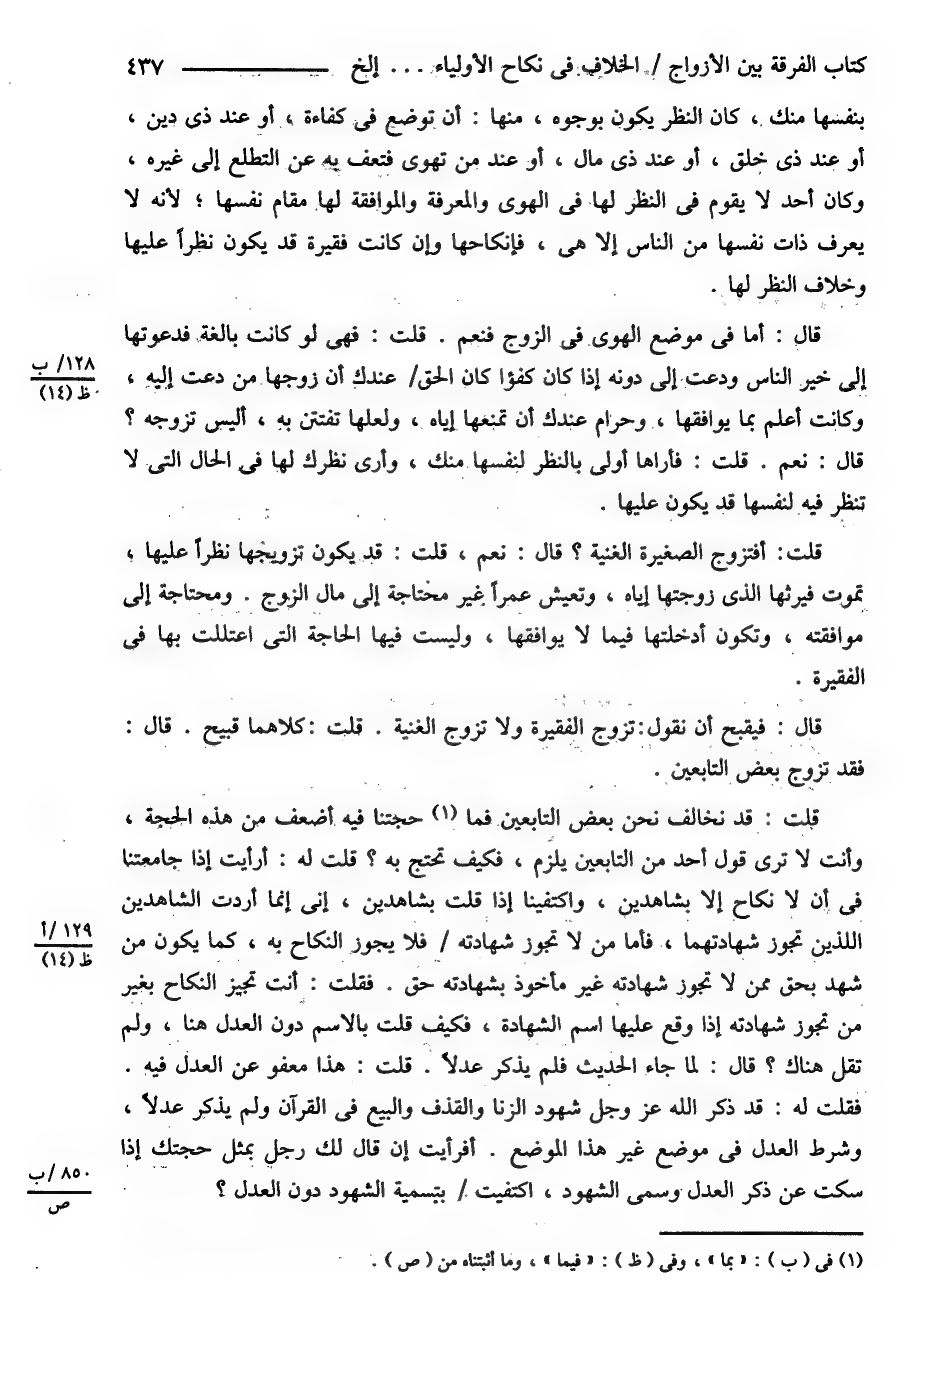 كتاب الفرقة بين الأزواج / الخلاف فى نكاح الأولياء ... إلخ ــــــــــــ ٤٣٧
بنفسها منك ، كان النظر يكون بوجوه ، منها : أن توضع فى كفاءة ، أو عند ذى دين ،
أو عند ذى خلق ، أو عند ذى مال ، أو عند من تهوى فتعف به عن التطلع إلى غيره ،
وكان أحد لا يقوم فى النظر لها فى الهوى والمعرفة والموافقة لها مقام نفسها ؛ لأنه لا
يعرف ذات نفسها من الناس إلا هى ، فإنكاحها وإن كانت فقيرة قد يكون نظراً عليها
وخلاف النظر لها .
قال : أما فى موضع الهوى فى الزوج فنعم . قلت : فهى لو كانت بالغة فدعوتها
إلى خير الناس ودعت إلى دونه إذا كان كفؤا كان الحق/ عندك أن زوجها من دعت إليه ،
١٢٨/ ب
ظ (١٤)
وكانت أعلم بما يوافقها ، وحرام عندك أن تمنعها إياه ، ولعلها تفتتن به ، أليس تزوجه ؟
قال : نعم . قلت : فأراها أولى بالنظر لنفسها منك ، وأرى نظرك لها فى الحال التى لا
تنظر فيه لنفسها قد يكون عليها .
قلت: أفتزوج الصغيرة الغنية ؟ قال : نعم ، قلت : قد يكون تزويجها نظراً عليها ؛
تموت فيرثها الذى زوجتها إياه ، وتعيش عمراً غير محتاجة إلى مال الزوج . ومحتاجة إلى
موافقته ، وتكون أدخلتها فيما لا يوافقها ، وليست فيها الحاجة التى اعتللت بها فى
الفقيرة .
قال : فيقبح أن نقول:تزوج الفقيرة ولا تزوج الغنية . قلت :كلاهما قبيح . قال :
فقد تزوج بعض التابعين .
قلت : قد نخالف نحن بعض التابعين فما (١) حجتنا فيه أضعف من هذه الحجة ،
وأنت لا ترى قول أحد من التابعين يلزم ، فكيف تحتج به ؟ قلت له : أرأيت إذا جامعتنا
فى أن لا نكاح إلا بشاهدين ، واكتفينا إذا قلت بشاهدين ، إنى إنما أردت الشاهدين
اللذين تجوز شهادتهما ، فأما من لا تجوز شهادته / فلا يجوز النكاح به ، كما يكون من
١٢٩ /أ
ظ (١٤)
شهد بحق ممن لا تجوز شهادته غير مأخوذ بشهادته حق . فقلت : أنت تجيز النكاح بغير
من تجوز شهادته إذا وقع عليها اسم الشهادة ، فكيف قلت بالاسم دون العدل هنا ، ولم
تقل هناك ؟ قال : لما جاء الحديث فلم يذكر عدلاً . قلت : هذا معفو عن العدل فيه .
فقلت له : قد ذكر الله عز وجل شهود الزنا والقذف والبيع فى القرآن ولم يذكر عدلاً ،
وشرط العدل فى موضع غير هذا الموضع . أفرأيت إن قال لك رجل بمثل حجتك إذا
سكت عن ذكر العدل وسمى الشهود ، اكتفيت / بتسمية الشهود دون العدل ؟
٨٥٠ /ب
ص
(١) فى ( ب ) : « بما » ، وفى ( ظ ) : « فيما » ، وما أثبتناه من ( ص ) .